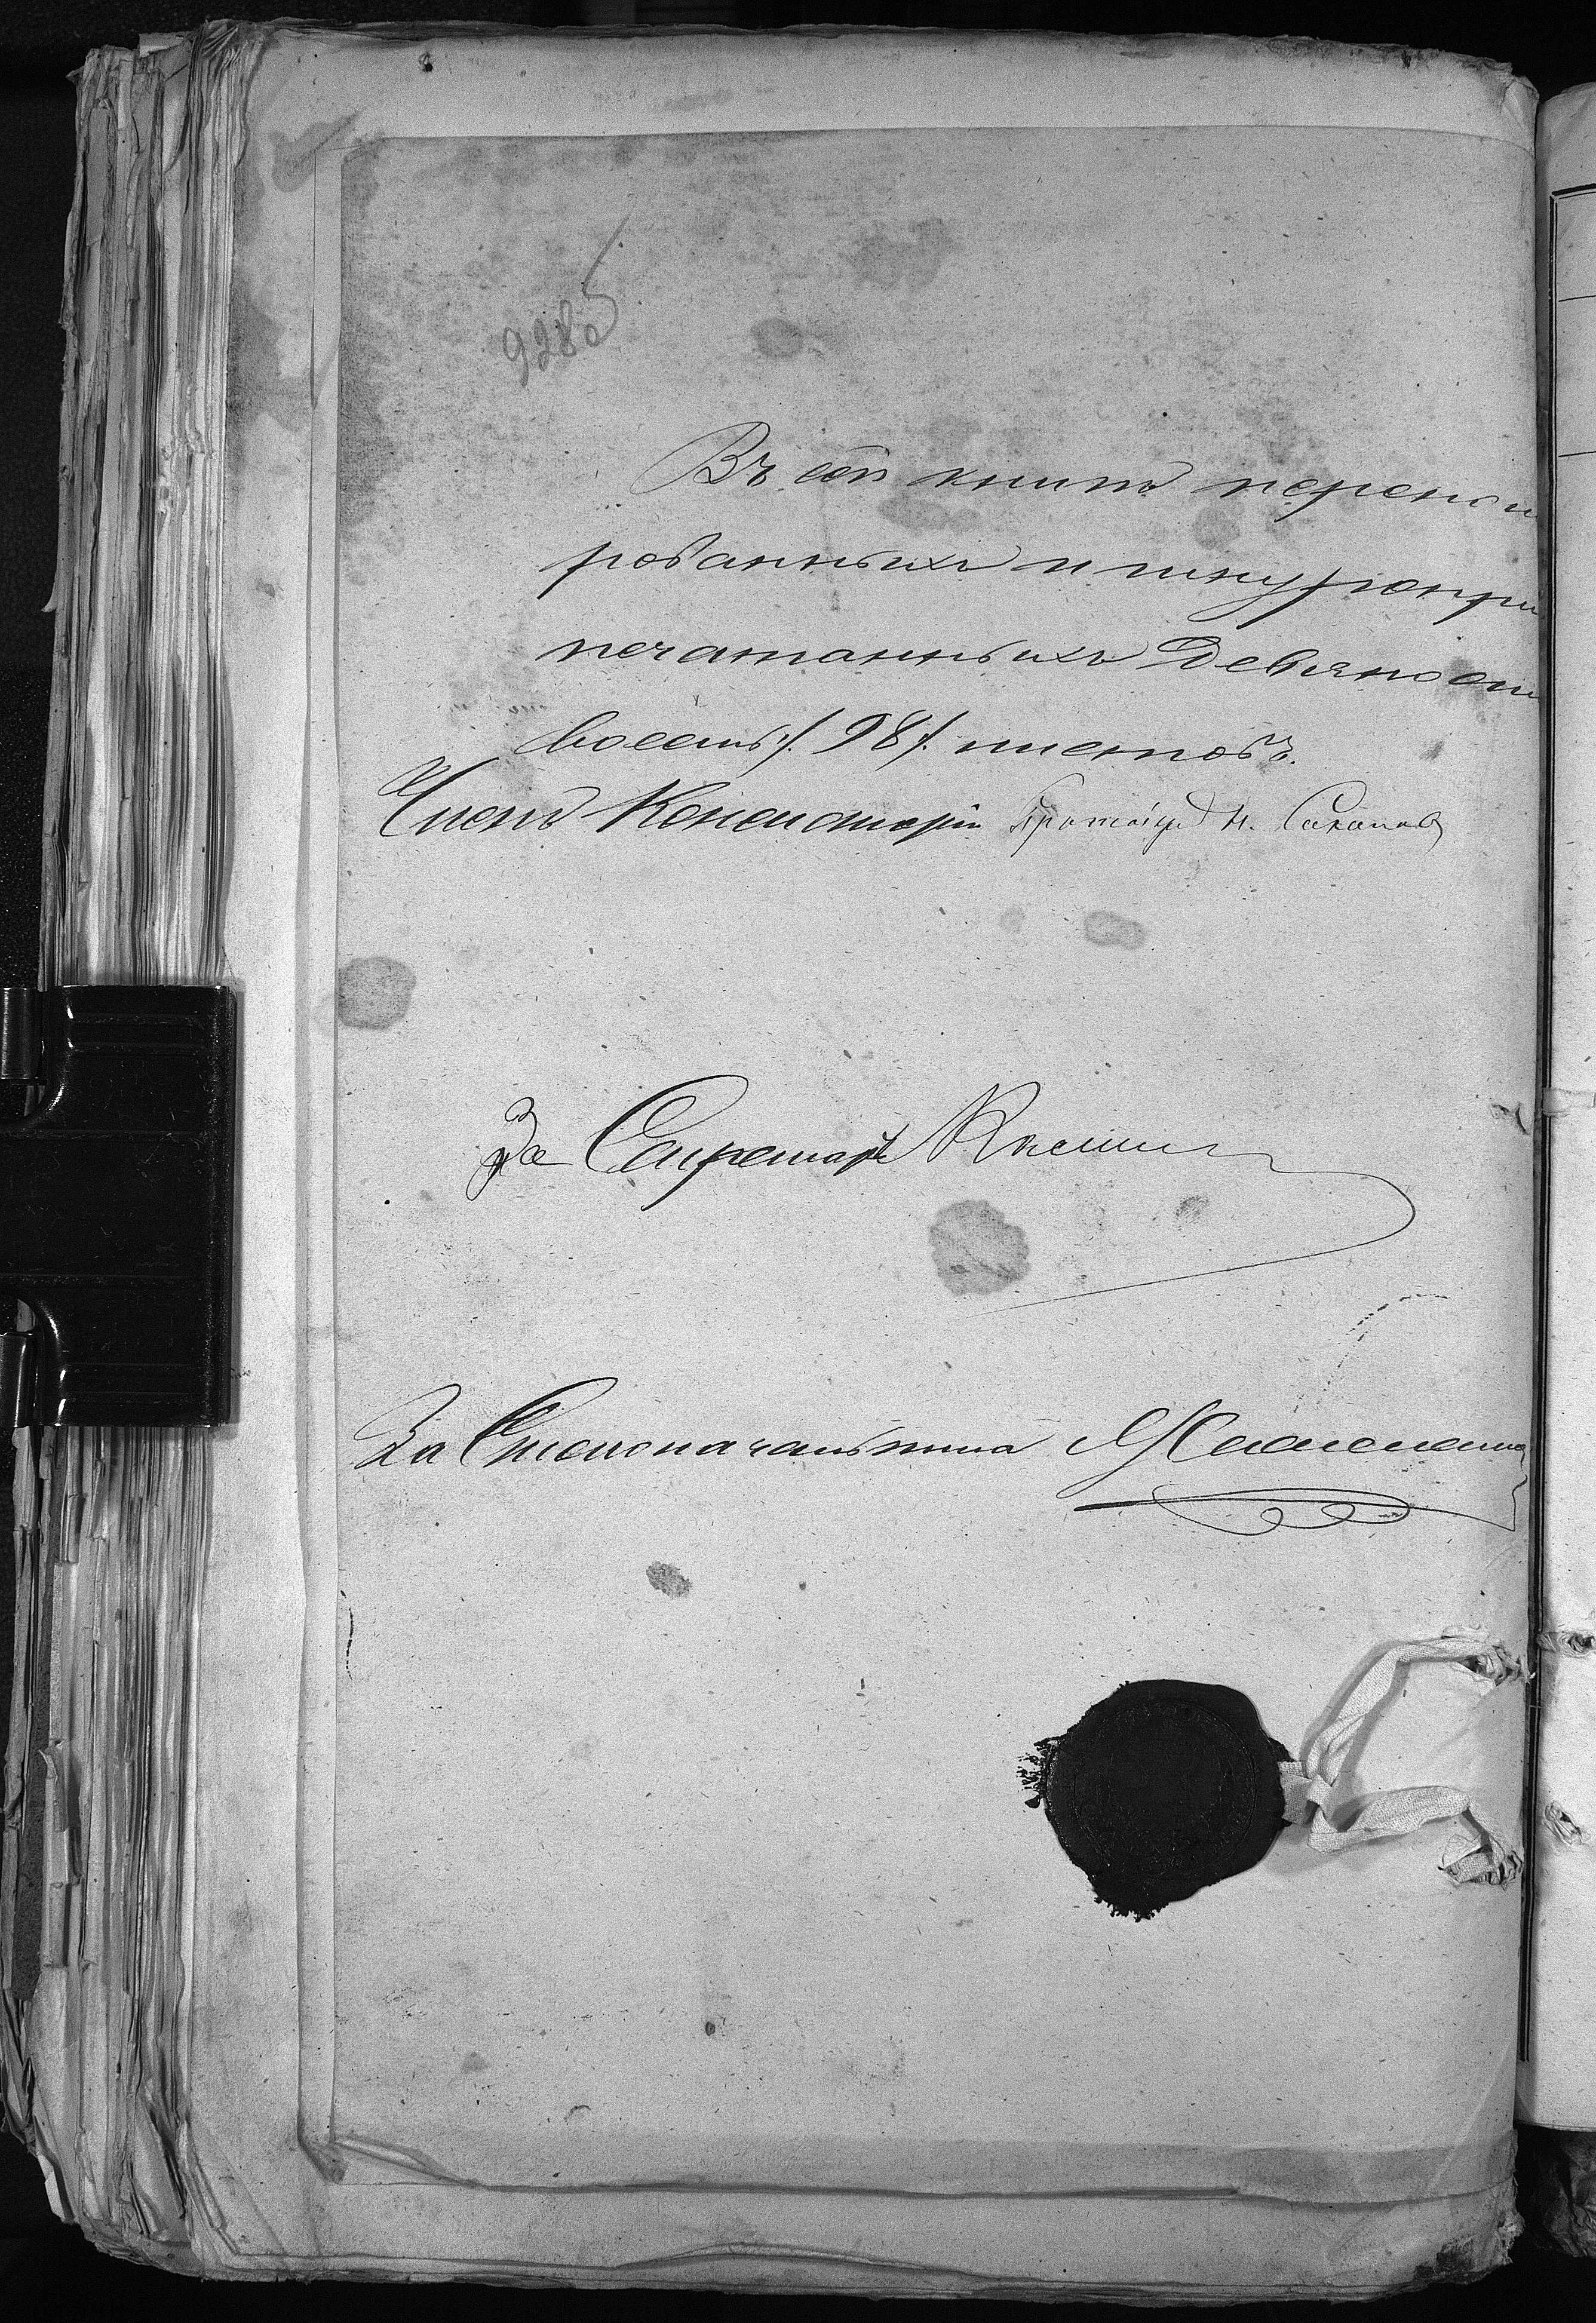 928об
Въ сей книгѣ переном
рованныхъ и шнуропри
печатанныхъ девяност
восемь /. 98 /. листовъ.
Членъ Консисторіи Протоіер. Н.
За Секретаря
За Столоначальника